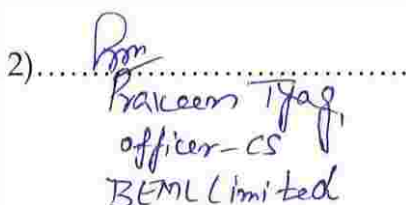 2)....................................
Praveen Tyagi
officer-CS
BEML Limited